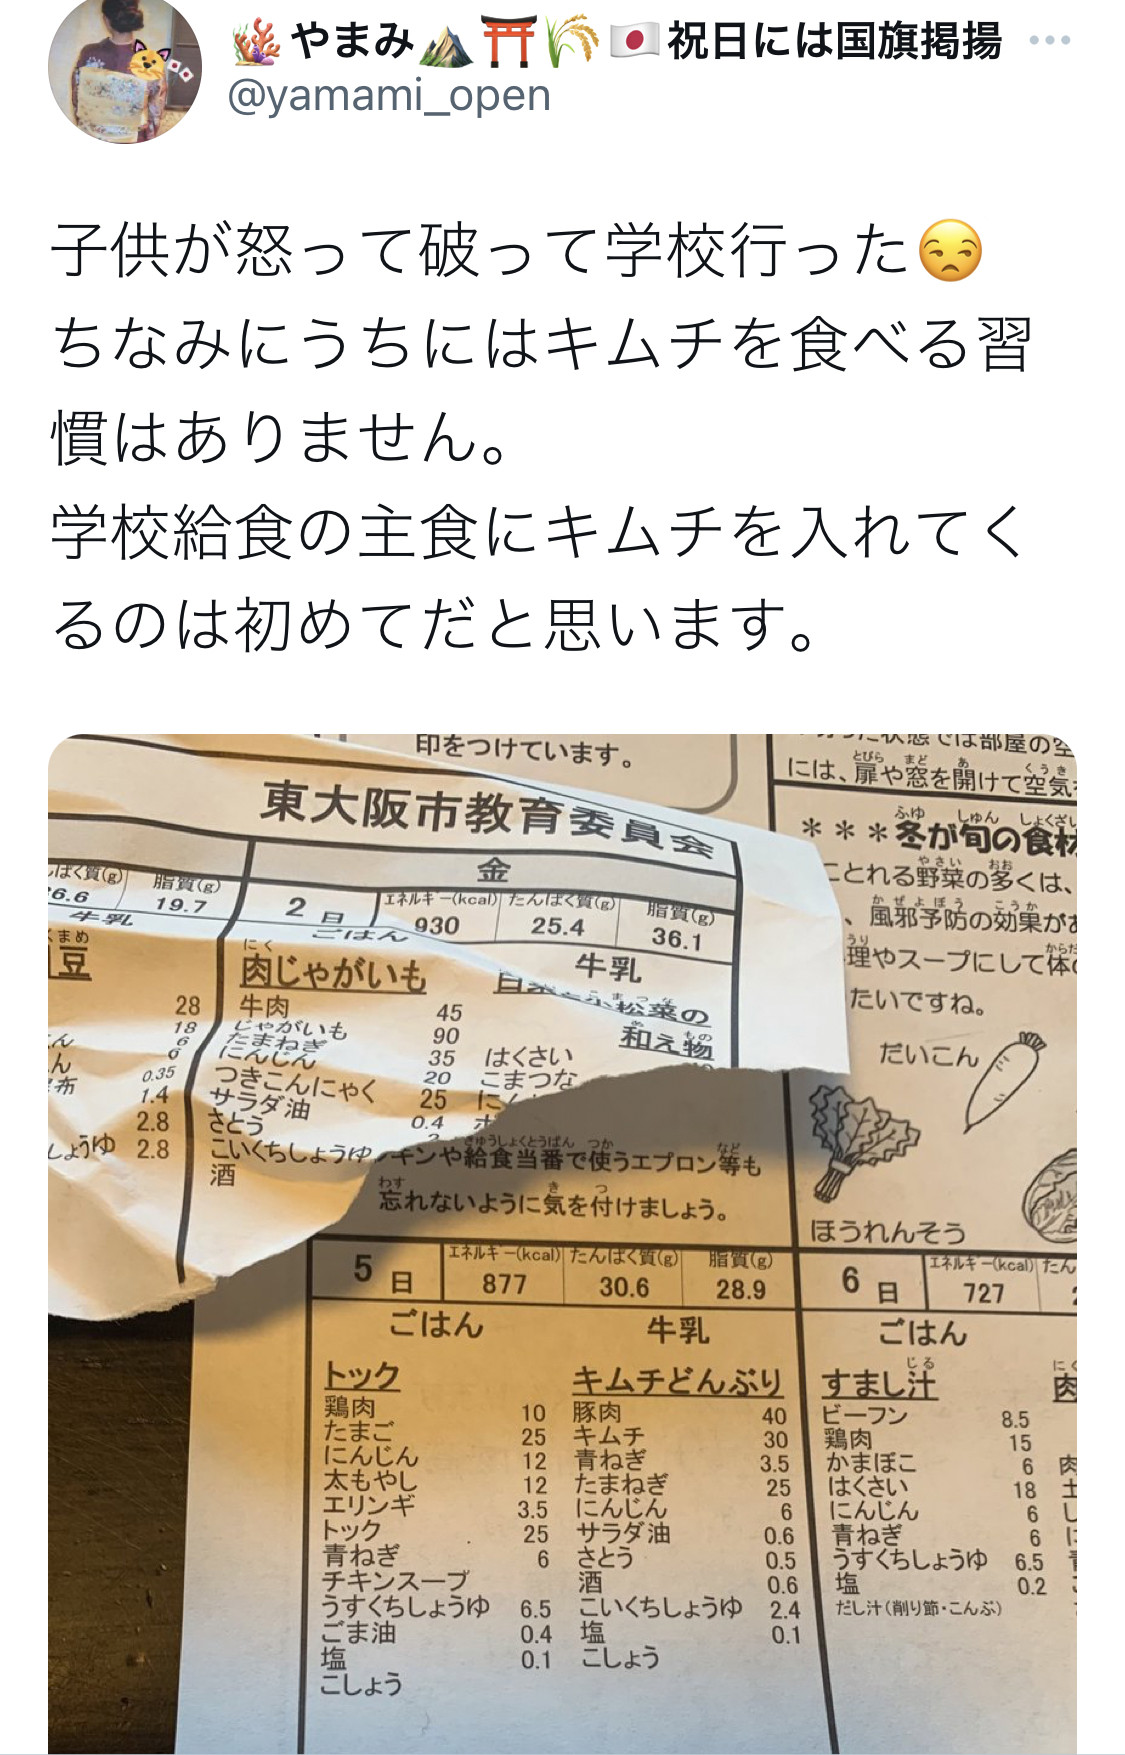 やまみ 祝日には国旗掲揚
@yamami_open
子供が怒って破って学校行った
ちなみにうちにはキムチを食べる習
慣はありません。
学校給食の主食にキムチを入れてく
るのは初めてだと思います。
印をつけています。
には、扉や窓を開けて空気
東大阪市教育委員会
***冬が旬の食材
とれる野菜の多くは、
、風邪予防の効果が
理やスープにして体
たいですね。
だいこん
ほうれんそう
脂質(g)
6.6 19.7
牛乳
豆
28
18
6
6
0.35
1.4
2.8
しょうゆ 2.8
金
2日 エネルギー(kcal) たんぱく質(g) 脂質(g)
930 25.4 36.1
ごはん 牛乳
肉じゃがいも
牛肉 45
じゃがいも 90
たまねぎ 35
にんじん 20
つきこんにゃく 25
サラダ油 0.4
さとう
こいくちしょうゆ
酒
小松菜の
和え物
はくさい
こまつな
ンや給食当番で使うエプロン等も
忘れないように気を付けましょう。
5日 エネルギー(kcal) たんぱく質(g) 脂質(g)
877 30.6 28.9
ごはん 牛乳
トック
鶏肉 10
たまご 25
にんじん 12
太もやし 12
エリンギ 3.5
トック 25
青ねぎ 6
チキンスープ
うすくちしょうゆ 6.5
ごま油 0.4
塩 0.1
こしょう
キムチどんぶり
豚肉 40
キムチ 30
青ねぎ 3.5
たまねぎ 25
にんじん 6
サラダ油 0.6
さとう 0.5
酒 0.6
こいくちしょうゆ 2.4
塩 0.1
こしょう
6日 エネルギー(kcal) たん
727
ごはん
すまし汁
ビーフン 8.5
鶏肉 15
かまぼこ 6
はくさい 18
にんじん 6
青ねぎ 6
うすくちしょうゆ 6.5
塩 0.2
だし汁(削り節・こんぶ)